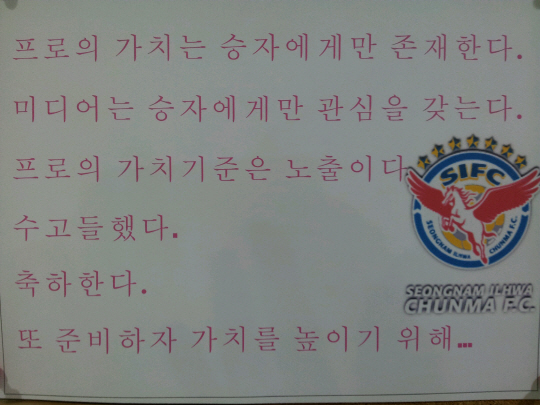 프로의 가치는 승자에게만 존재한다.
미디어는 승자에게만 관심을 갖는다.
프로의 가치기준은 노출이다
수고들했다.
축하한다.
또 준비하자 가치를 높이기 위해...
SIFC
SEONGNAM ILHWA CHUNMA F.C.
SEONGNAM ILHWA
CHUNMA F.C.